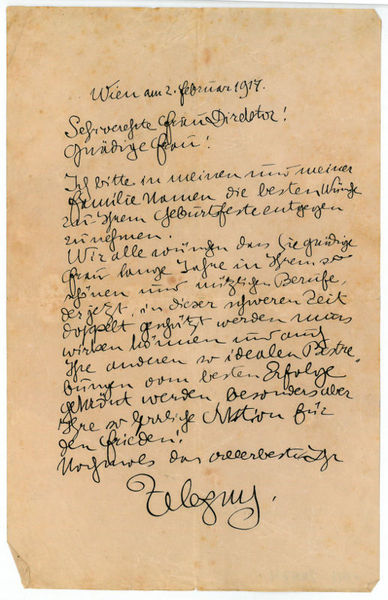 Wien am 2. Februar 1917.
Sehrverehrte Frau Direktor!
Gnädige Frau!
Ich bitte in meinen und meiner
Familie Namen die besten Wünsche
zu Ihrem Geburtsfeste entgegen
zu nehmen.
Wir alle wünschen dass Sie gnädige
Frau lange Jahre in Ihrem so
schönen und nützlichen Berufe,
der jetzt, in dieser schweren Zeit
doppelt geschätzt werden muss
wirken können und auch
Ihre anderen so idealen Bestre-
bungen vom besten Erfolge
gekrönt werden besonders aber
Ihre so herrliche Aktion für
den Frieden!
Nochmals das allerbeste